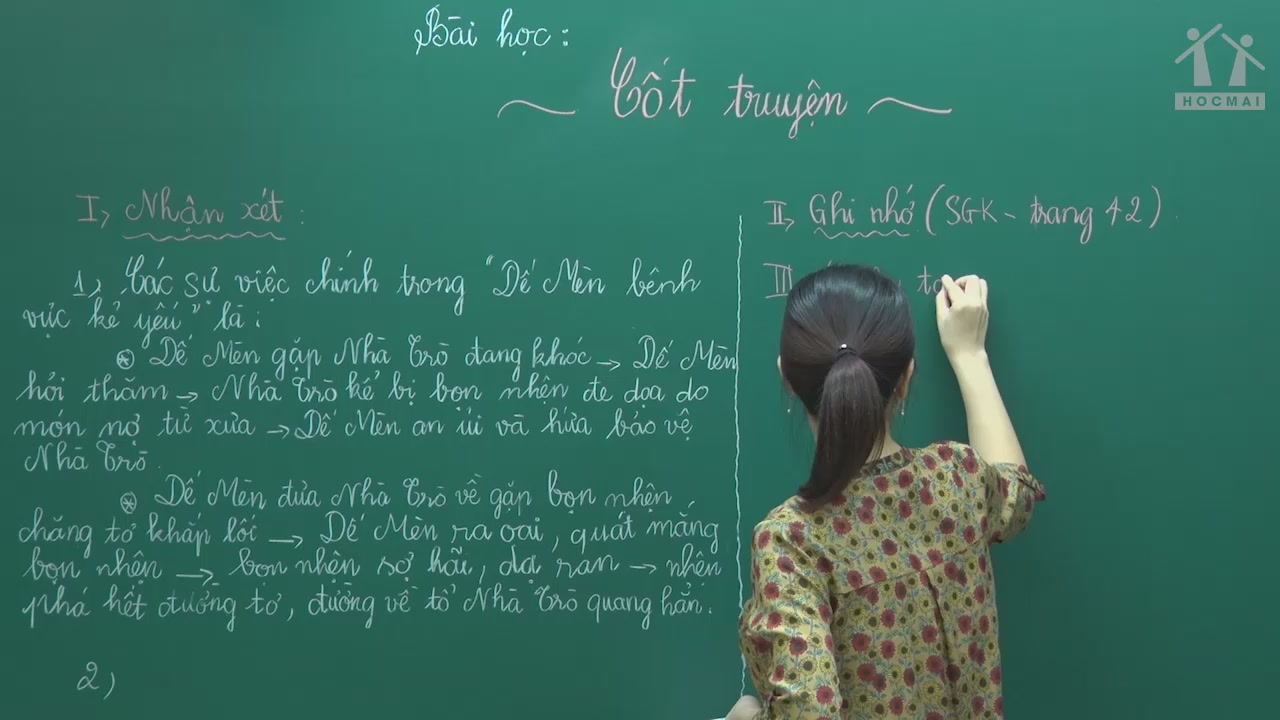 Bài học:
Cốt truyện
I, Nhận xét:
1, Các sự việc chính trong "Dế Mèn bênh
vực kẻ yếu" là:
Dế Mèn gặp Nhà Trò đang khóc → Dế Mèn
hỏi thăm → Nhà Trò kể bị bọn nhện đe dọa do
món nợ từ xưa → Dế Mèn an ủi và hứa bảo vệ
Nhà Trò.
Dế Mèn đưa Nhà Trò về gặp bọn nhện
chăng tơ khắp lối → Dế Mèn ra oai, quát mắng
bọn nhện → bọn nhện sợ hãi, dạ ran → nhện
phá hết đường tơ, đường về tổ Nhà Trò quang hẳn.
2,
II, Ghi nhớ (SGK - trang 42)
III
HOCMAI